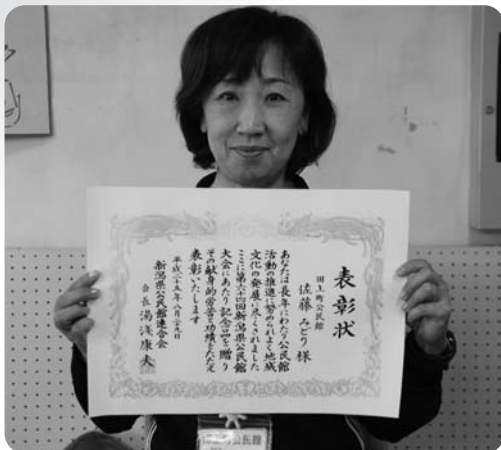 表彰状
田上町公民館
佐藤みどり様
あなたは長年にわたり公民館
活動の推進に努められよく地域
文化の発展に尽くされました
ここに第六十四回新潟県公民館
大会にあたり記念品を贈り
その献身的労苦と功績をたたえ
表彰いたします
平成二十五年八月二十九日
新潟県公民館連合会
会長 湯浅康夫
公民館